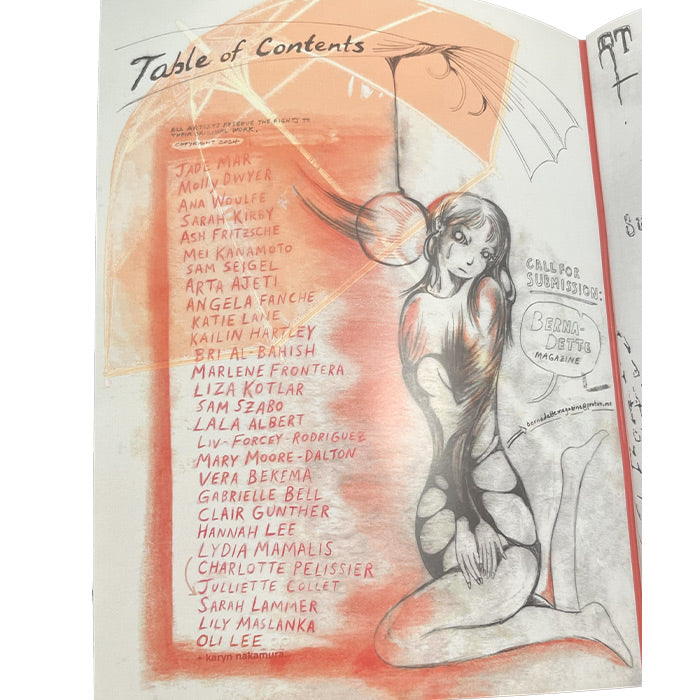 Table of Contents
ALL ARTISTS RESERVE THE RIGHTS TO
THEIR ORIGINAL WORK.
COPYRIGHT 2024
JADE MAR
MOLLY DWYER
ANA WOULFE
SARAH KIRBY
ASH FRITZSCHE
MEI KANAMOTO
SAM SEIGEL
ARTA AJETI
ANGELA FANCHE
KATIE LANE
KAILIN HARTLEY
BRI AL-BAHISH
MARLENE FRONTERA
LIZA KOTLAR
SAM SZABO
LALA ALBERT
LIV FORCEY-RODRIGUEZ
MARY MOORE-DALTON
VERA BEKEMA
GABRIELLE BELL
CLAIR GUNTHER
HANNAH LEE
LYDIA MAMALIS
CHARLOTTE PELISSIER
JULLIETTE COLLET
SARAH LAMMER
LILY MASLANKA
OLI LEE
+ karyn nakamura
CALL FOR
SUBMISSION:
BERNA-
DETTE
MAGAZINE
bernadettemagazine@proton.me
RT